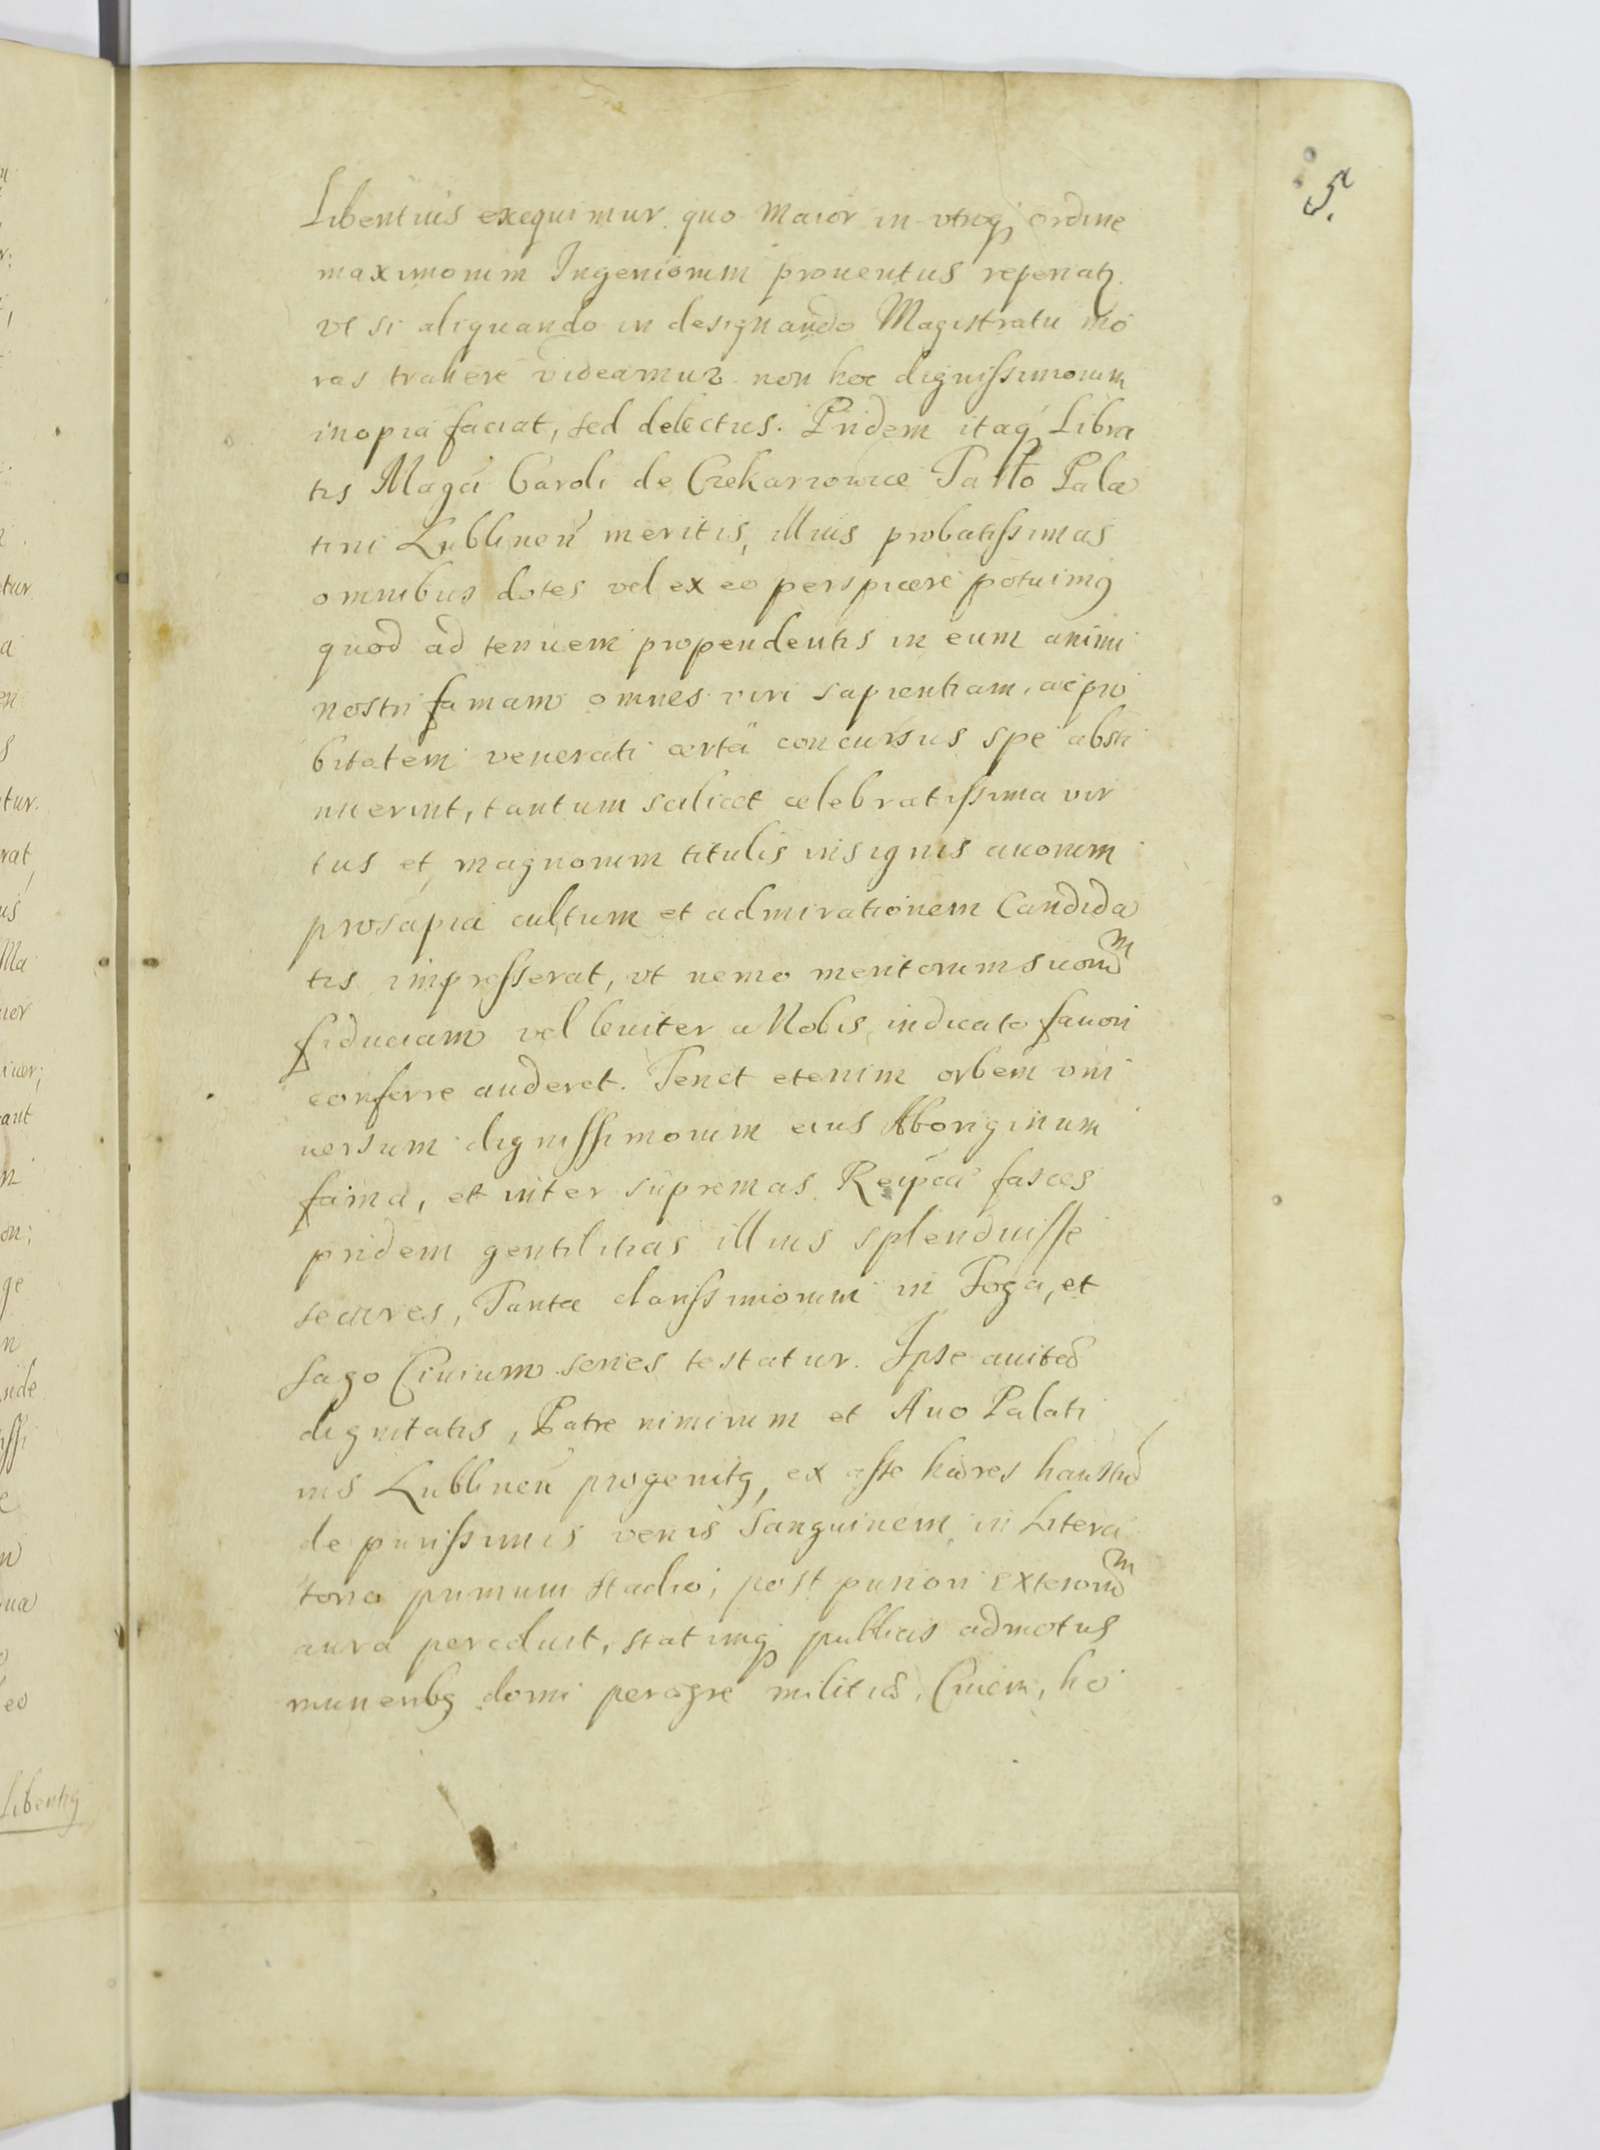 5.
Libentius exequimur quo maior in vtroq; ordine
maximorum Ingeniorum prouentus reperiatr
vt si aliquando in designando Magistratu mo
ras trahere videamur non hoc dignissimorum
inopia faciat, sed delectus. Pridem itaq Libra
tis Magci Caroli de Czekarzowice Tarło Pala
tini Lublinen meritis, illius probatissimas
omnibus dotes vel ex eo perspicere potuimus
quod ad tenuem propendentis in eum animi
nostri famam omnes viri sapientiam, ac pro
bitatem venerati certa concursus spe absti
nuerint, tantum scilicet celebratissima vir
tus et magnorum titulis insignis auorum
prosapia cultum et admirationem Candida
tis impresserat, vt nemo meritorum suorum
fiduciam vel leuiter a Nobis indicato fauori
conferre auderet. Tenet etenim orbem vni
uersum dignissimorum eius Aboriginum
fama, et inter supremas Reipcae fasces
pridem gentilitias illius splenduisse
secures, Tanta clarissimorum in Toga, et
Sago Ciuium series testatur. Ipse auitae
dignitatis, Patre nimirum et Auo Palati
nis Lublinen progenitus, ex asse haeres haustum
de purissimis venis Sanguinem in Litera
torio primum stadio, post puriori exterorum
aura percoluit, statimq publicis admotus
muneribus domi peragre militiae, Ciuem, ho
tur
tur.
rat,
Ma
aut
on;
nide
Libentig